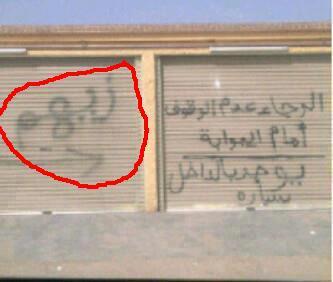 الرجاء عدم الوقوف
أمام البوابة
يوجد بالداخل
سياره